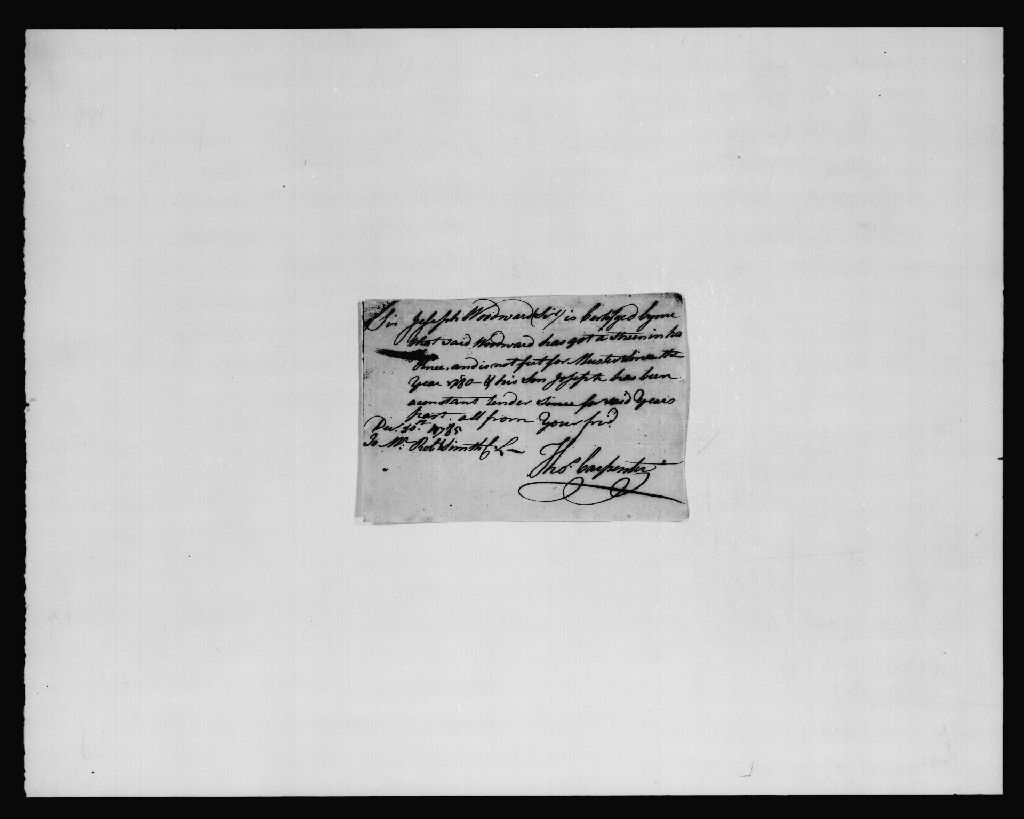 Sir Joseph Woodward (Sr) is certifyed by me
that said Woodward has got a Strein in his
Knee. and is not fit for Muster Since the
Year 1780 - & his Son Joseph has been
a constant tender Since for said Years
past. all from Your frd
Dec. 30th 1785
To Mr. Robt Smith
Thos. Carpenter